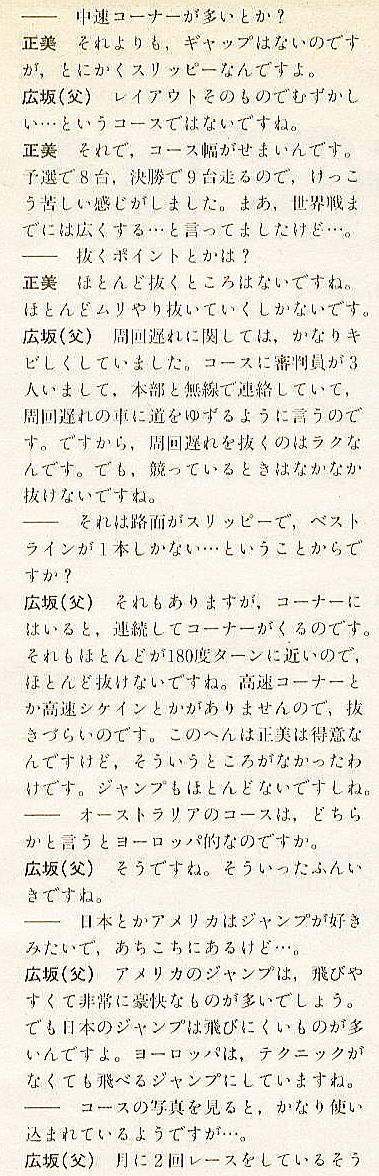 ―― 中速コーナーが多いとか？
正美　それよりも，ギャップはないのです
が，とにかくスリッピーなんですよ。
広坂(父)　レイアウトそのものでむずかし
い…というコースではないですね。
正美　それで，コース幅がせまいんです。
予選で8台，決勝で9台走るので，けっこ
う苦しい感じがしました。まあ，世界戦ま
でには広くする…と言ってましたけど…。
―― 抜くポイントとかは？
正美　ほとんど抜くところはないですね。
ほとんどムリやり抜いていくしかないです。
広坂(父)　周回遅れに関しては，かなりキ
ビしくしていました。コースに審判員が3
人いまして，本部と無線で連絡していて，
周回遅れの車に道をゆずるように言うので
す。ですから，周回遅れを抜くのはラクな
んです。でも，競っているときはなかなか
抜けないですね。
―― それは路面がスリッピーで，ベスト
ラインが1本しかない…ということからで
すか？
広坂(父)　それもありますが，コーナーに
はいると，連続してコーナーがくるのです。
それもほとんどが180度ターンに近いので，
ほとんど抜けないですね。高速コーナーと
か高速シケインとかがありませんので，抜
きづらいのです。このへんは正美は得意な
んですけど，そういうところがなかったわ
けです。ジャンプもほとんどないですしね。
―― オーストラリアのコースは，どちら
かと言うとヨーロッパ的なのですか。
広坂(父)　そうですね。そういったふんい
きですね。
―― 日本とかアメリカはジャンプが好き
みたいで，あちこちにあるけど…。
広坂(父)　アメリカのジャンプは，飛びや
すくて非常に豪快なものが多いでしょう。
でも日本のジャンプは飛びにくいものが多
いんですよ。ヨーロッパは，テクニックが
なくても飛べるジャンプにしていますね。
―― コースの写真を見ると，かなり使い
込まれているようですが…。
広坂(父)　月に2回レースをしているそう